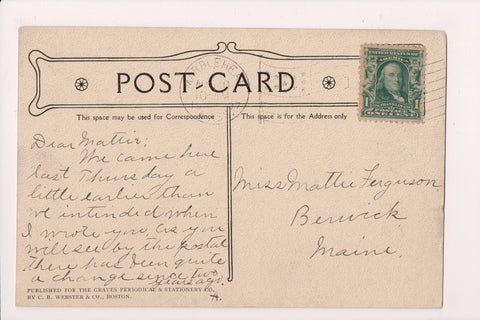 POST-CARD
MARBLEHEAD
This space may be used for Correspondence
This space is for the Address only
1
1
Dear Mattie;
We came here
last Thursday a
little earlier than
we intinded when
I wrote you, as you
will see by the postal
There has been quite
a change since two
years ago.
A.
Miss Mattie Ferguson
Berwick
Maine.
PUBLISHED FOR THE GRAVES PERIODICAL & STATIONERY CO.
BY C. B. WEBSTER & CO., BOSTON.